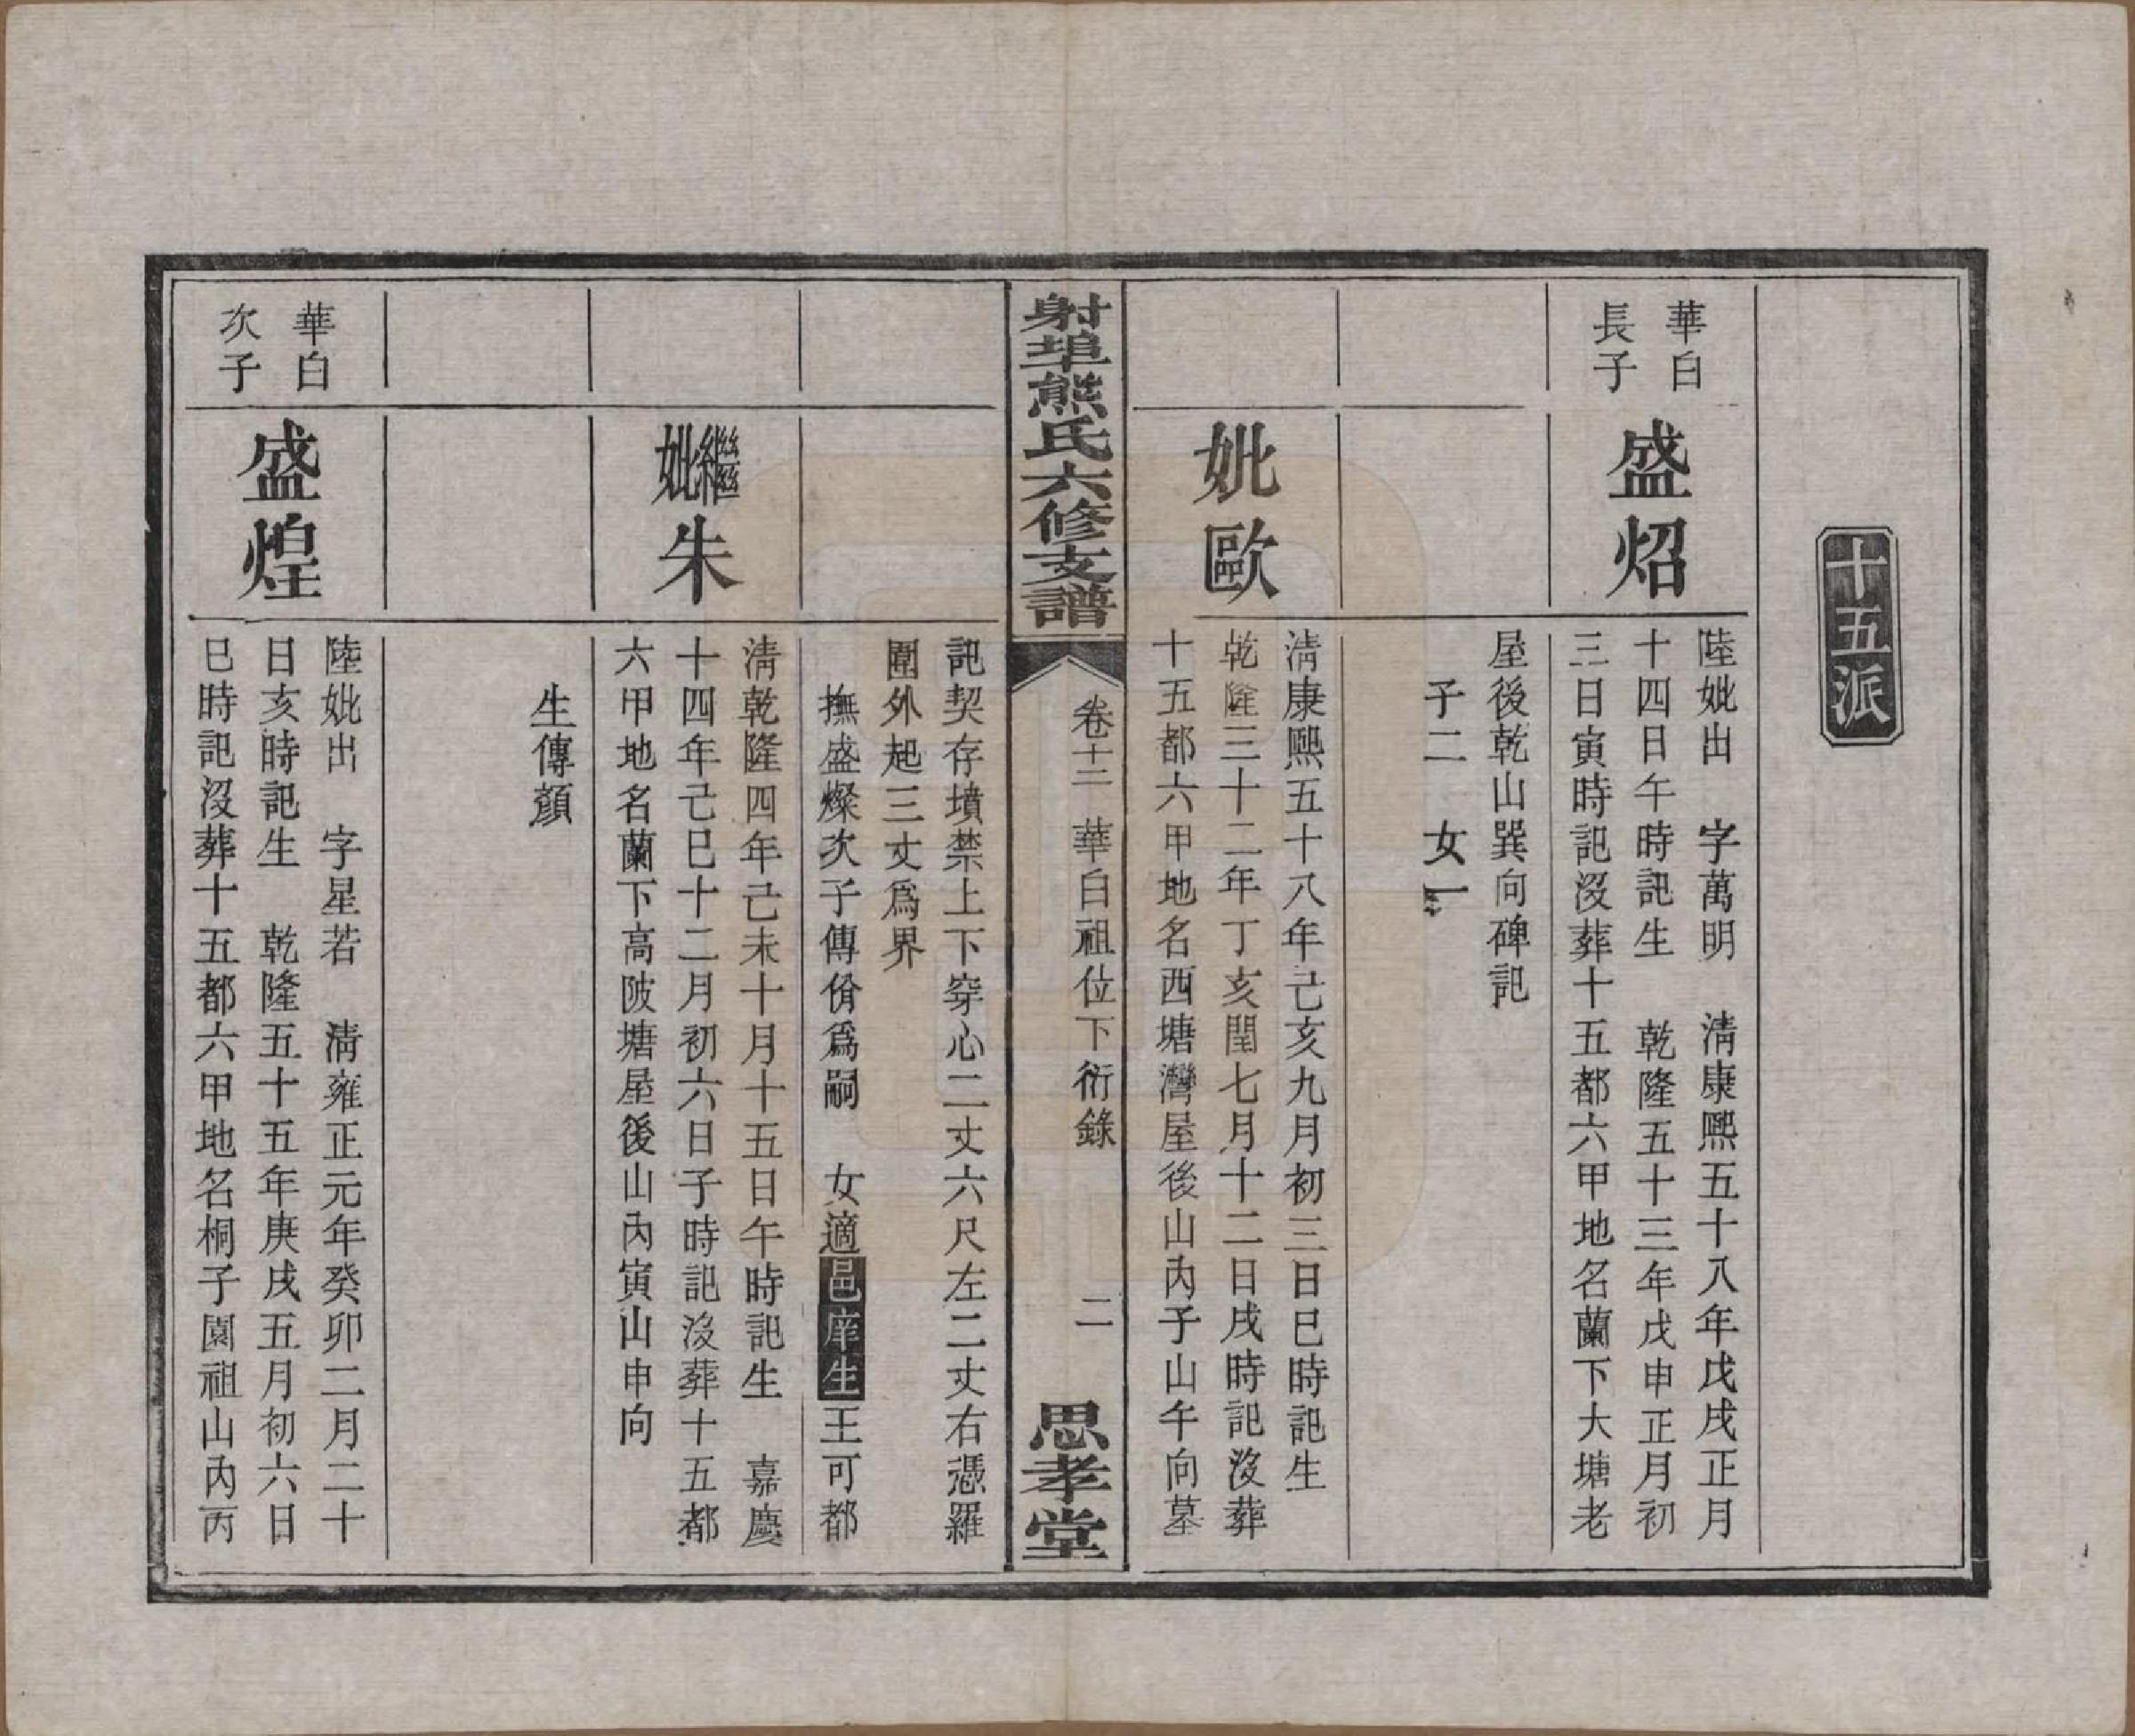 十五派
華白
長子
盛炤
陸妣出　字萬明　淸康熙五十八年戊戌正月
十四日午時記生　乾隆五十三年戊申正月初
三日寅時記沒葬十五都六甲地名蘭下大塘老
屋後乾山巽向碑記
子二　女一
妣歐
淸康熙五十八年己亥九月初三日巳時記生
乾隆三十二年丁亥閏七月十二日戌時記沒葬
十五都六甲地名西塘灣屋後山內子山午向墓
射埠熊氏六修支譜
卷十二　華白祖位下衍錄
二
思孝堂
記契存墳禁上下穿心二丈六尺左二丈右憑羅
圍外起三丈爲界
撫盛燦次子傳份爲嗣　女適邑庠生王可都
繼妣朱
淸乾隆四年己未十月十五日午時記生　嘉慶
十四年己巳十二月初六日子時記沒葬十五都
六甲地名蘭下高陂塘屋後山內寅山申向
生傳顏
華白
次子
盛煌
陸妣出　字星若　淸雍正元年癸卯二月二十
日亥時記生　乾隆五十五年庚戌五月初六日
巳時記沒葬十五都六甲地名桐子園祖山內丙